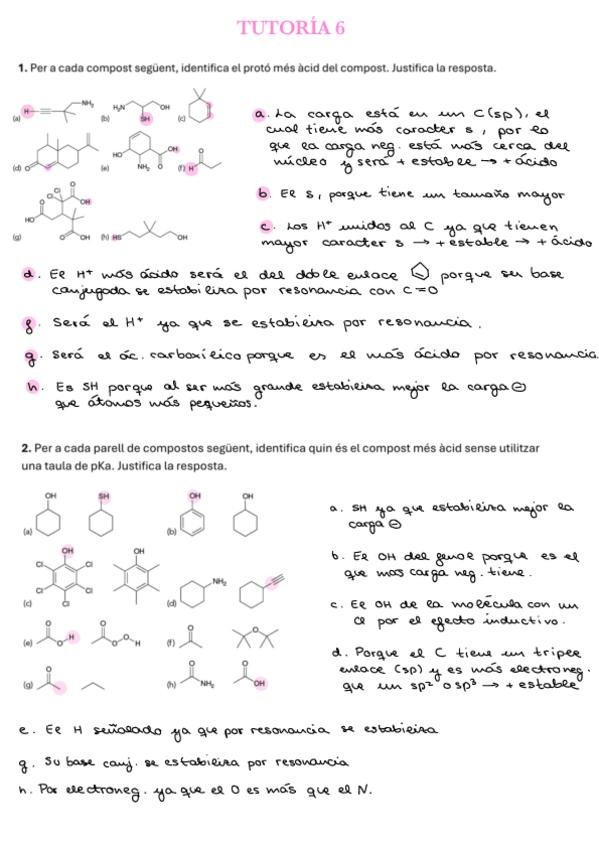 TUTORÍA 6
1. Per a cada compost següent, identifica el protó més àcid del compost. Justifica la resposta.
H NH₂
(a)
H₂N OH
SH
(b)
(c)
a. La carga está en un C(sp), el
cual tiene más caracter s, por lo
que la carga neg. está más cerca del
núcleo y será + estable → + ácido
O
(d)
HO OH
NH₂ O
(e)
O
(f) H
b. El S, porque tiene un tamaño mayor
Cl O
Cl OH
O
HO
O OH
(g)
(h) HS OH
c. Los H⁺ unidos al C ya que tienen
mayor caracter s → + estable → + ácido
d. El H⁺ más ácido será el del doble enlace porque su base
conjugada se estabiliza por resonancia con C=O
f. Será el H⁺ ya que se estabiliza por resonancia.
g. Será el ác. carboxílico porque es el más ácido por resonancia.
h. Es SH porque al ser más grande estabiliza mejor la carga ⊖
que átomos más pequeños.
2. Per a cada parell de compostos següent, identifica quin és el compost més àcid sense utilitzar
una taula de pKa. Justifica la resposta.
OH SH OH OH
(a) (b)
a. SH ya que estabiliza mejor la
carga ⊖
OH OH
Cl Cl
Cl Cl
Cl
(c)
NH₂
(d)
b. El OH del fenol porque es el
que mas carga neg. tiene.
c. El OH de la molécula con un
Cl por el efecto inductivo.
O O
(e) O H O O H
O O
(f)
d. Porque el C tiene un triple
enlace (sp) y es más electroneg.
que un sp² o sp³ → + estable
O
(g)
O O
(h) NH₂ OH
e. El H señalado ya que por resonancia se estabiliza
g. Su base conj. se estabiliza por resonancia
h. Por electroneg. ya que el O es más que el N.